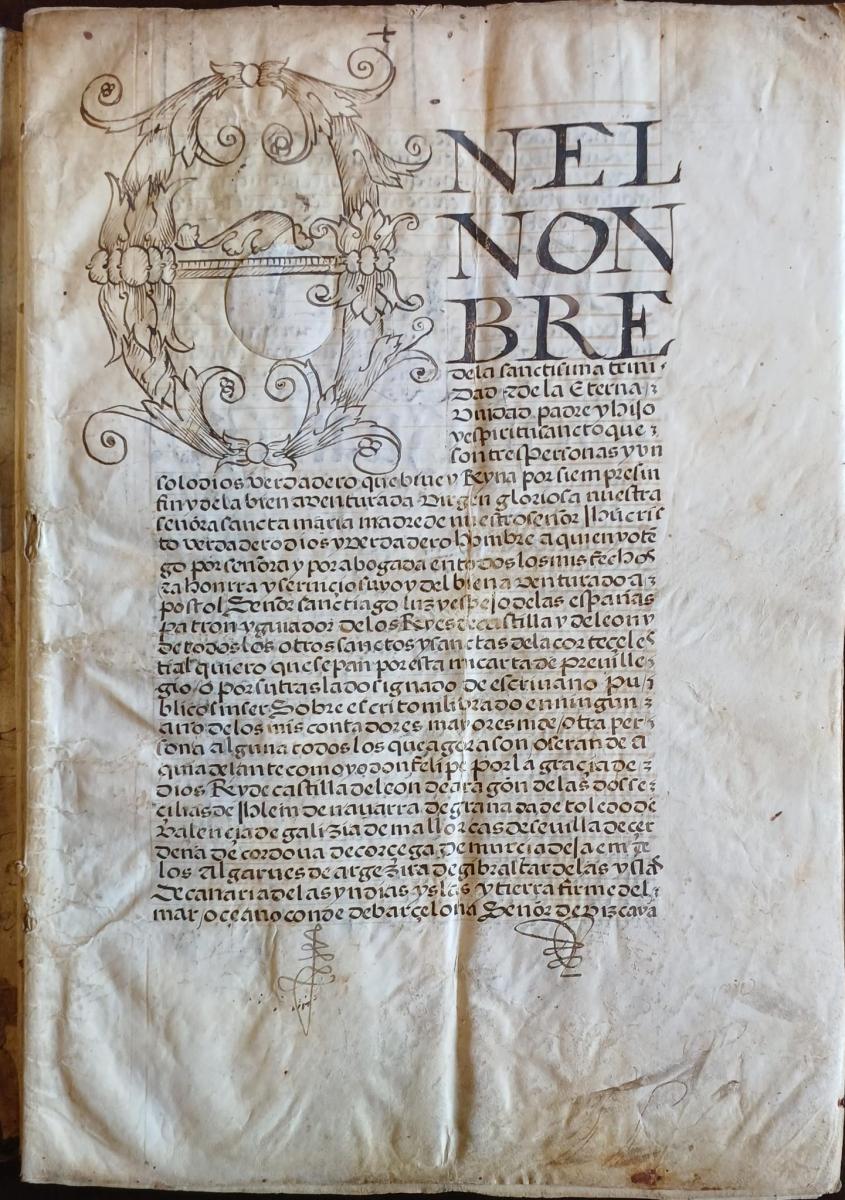 EN EL
NON
BRE
dela sanctisima trini
dad ⁊ dela Eterna
vnidad padre y hijo
y espiritu sancto que
son tres personas y vn
solo dios verdadero que biue y Reyna por siempre sin
fin y dela bien aventurada virgen gloriosa nuestra
señora sancta maria madre de nuestro señor Jhu cris
to verdadero dios y verdadero hombre a quien yo tē
go por señora y por abogada en todos los mis fechos
za honrra y seruicio suyo y del bien aventurado a
postol Señor sanctiago luz y espejo de las españas
patron y guiador de los Reyes de castilla y de leon y
de todos los otros sanctos y sanctas dela corte çeles
tral quiero que sepan por esta mi carta de preuille
gio o por su traslado signado de escriuano pu
blico sin ser Sobre escrito ni librado en ningun
año de los mis contadores mayores ni de otra per
sona alguna todos los que agora son o seran de a
qui adelante como yo don felipe por la graçia de
dios Rey de castilla de leon de aragon de las dos se
cilias de Jhlem de nauarra de granada de toledo de
valençia de galizia de mallorcas de seuilla de çer
deña de cordoua de corcega de murcia de jaem de
los algarues de argezira de gibraltar de las yslas
de canaria de las yndias yslas y tierra firme del
mar oçeano conde de barçelona Señor de vizcaya